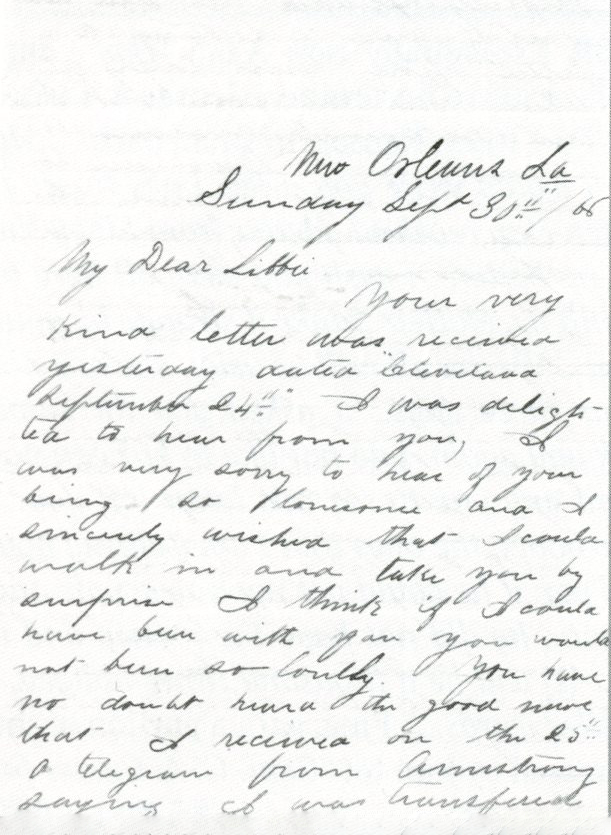 New Orleans La
Sunday Sept 30th/66
My Dear Libbie
Your very
kind letter was received
yesterday dated "Cleveland
September 24th" I was deligh-
ted to hear from you, I
was very sorry to hear of your
being so lonesome and I
sincerely wished that I could
walk in and take you by
surprise I think if I could
have been with you you would
not been so lonely. You have
no doubt heard the good news
that I received on the 25th
a telegram from Armstrong
saying I was transfered